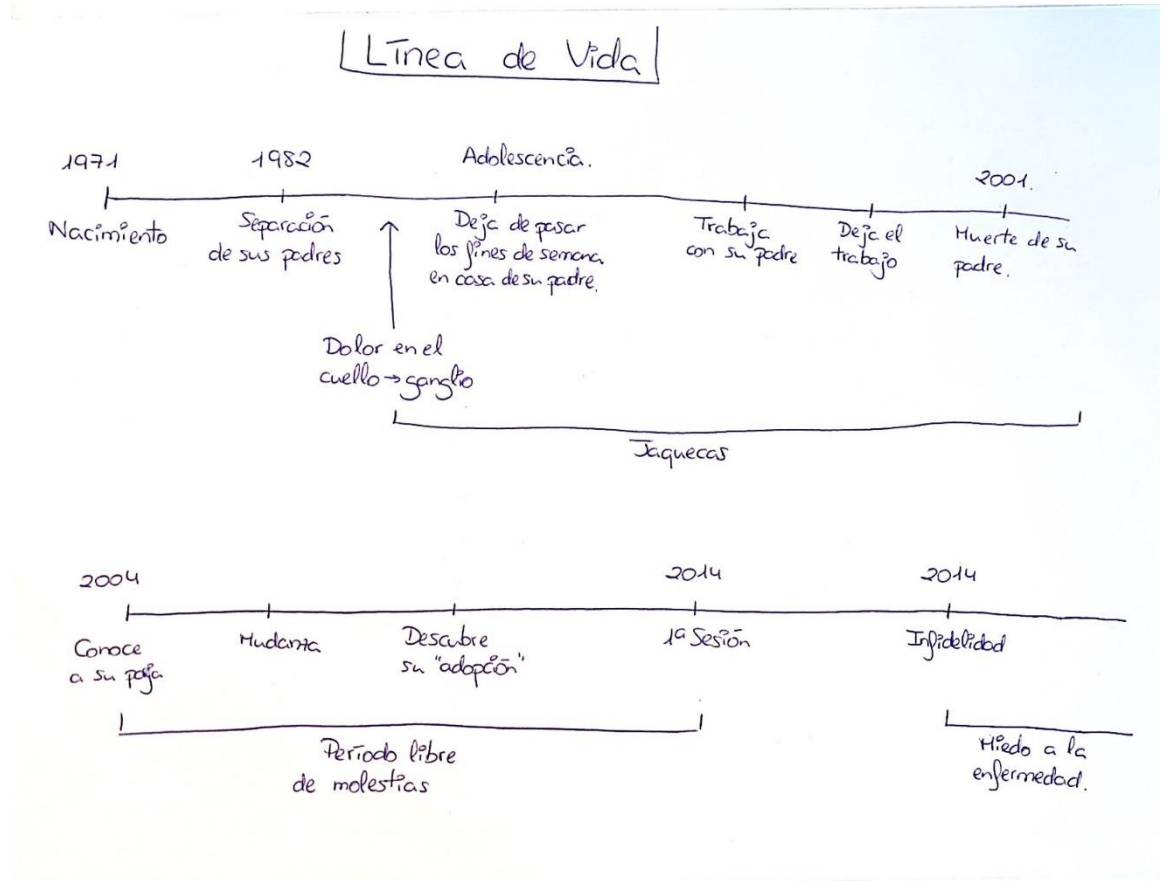 Línea de Vida
1971
1982
Adolescencia.
2001.
Nacimiento
Separación
de sus padres
Deja de pasar
los fines de semana
en casa de su padre.
Trabaja
con su padre
Deja el
trabajo
Muerte de su
padre.
Dolor en el
cuello → ganglio
Jaquecas
2004
2014
2014
Conoce
a su paja
Mudanza
Descubre
su "adopción"
1ª Sesión
Infidelidad
Período libre
de molestias
Miedo a la
enfermedad.